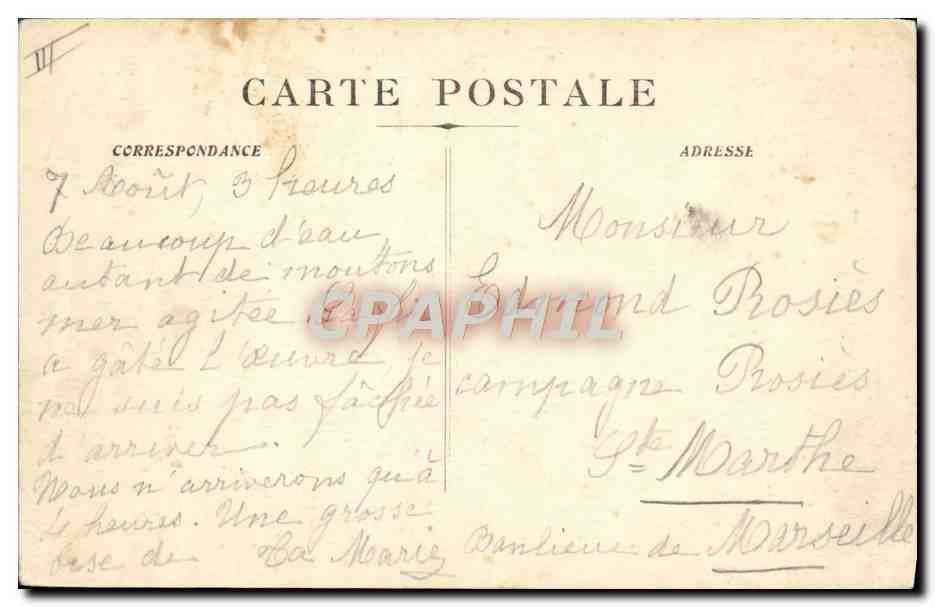 III
CARTE POSTALE
CORRESPONDANCE
7 Août, 3 heures
Beaucoup d'eau,
autant de moutons
mer agitée
a gâté l'œuvre, je
ne suis pas fâchée
d'arriver.
Nous n'arriverons qu'à
4 heures. Une grosse
bise de Ta Marie
ADRESSE
Monsieur
Edmond Rosiès
campagne Rosiès
Ste Marthe
Banlieue de Marseille
CPAPHIL